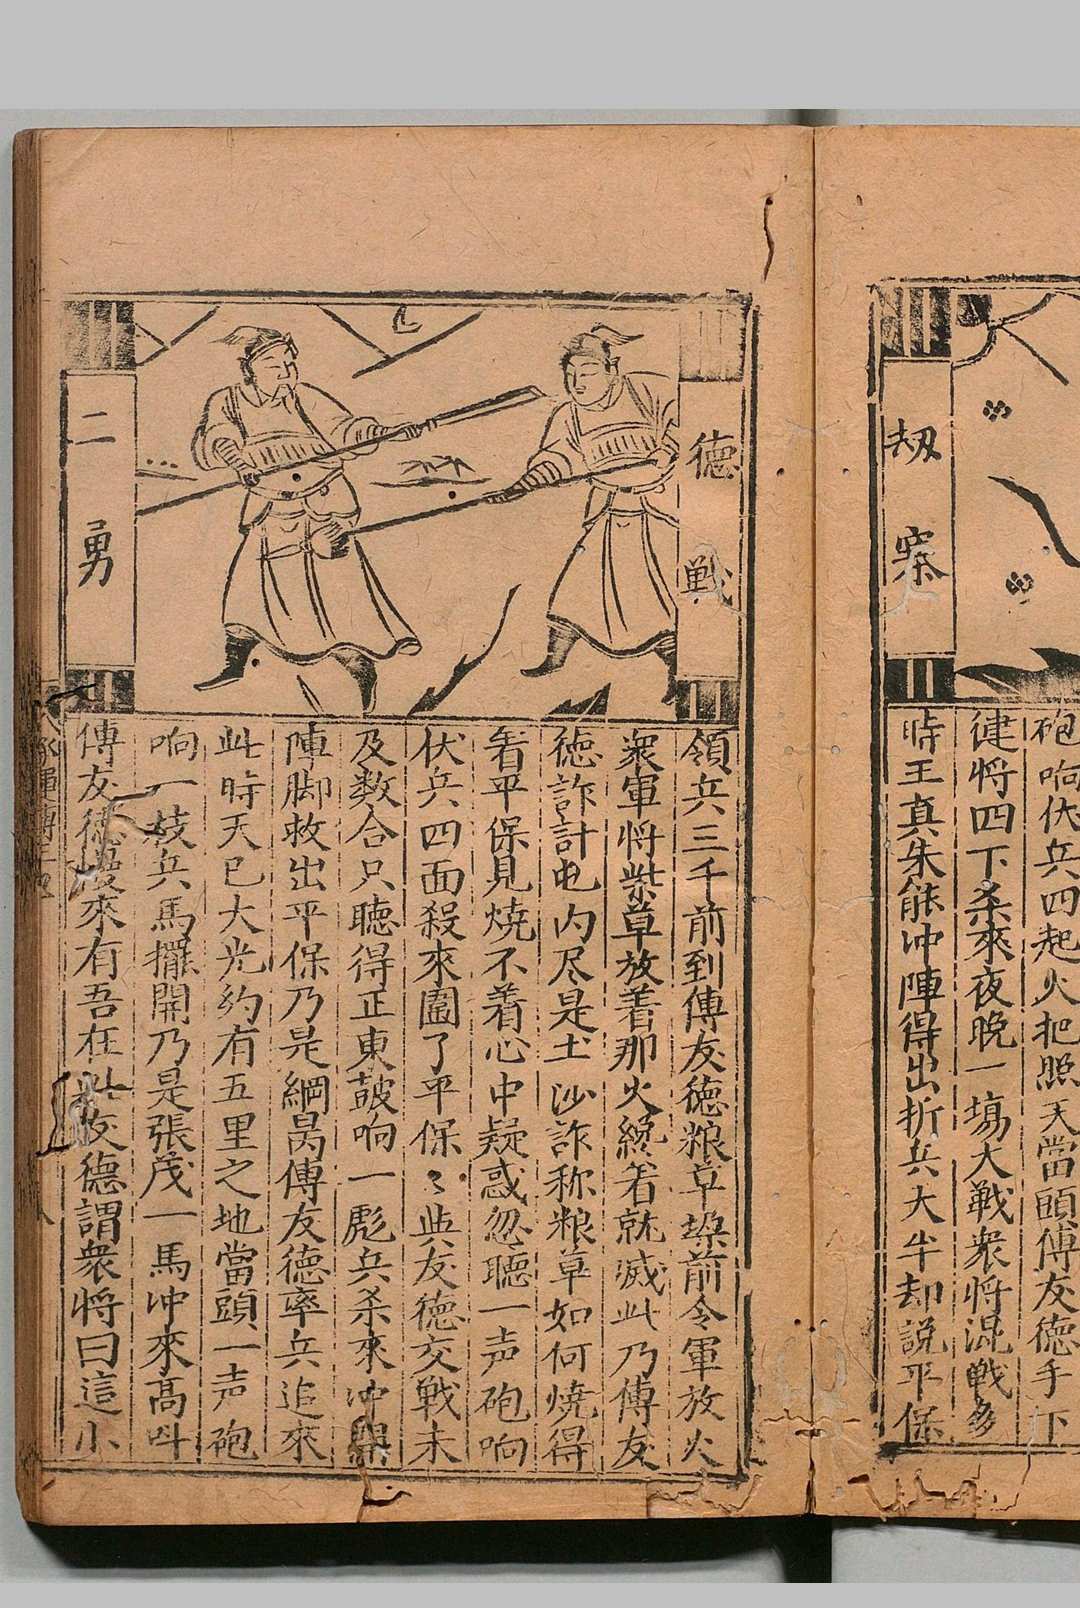 砲响伏兵四起火把照天當頭傅友德手下
健将四下杀來夜晚一塲大戰衆将混戰多
時王真朱能冲陣得出折兵大半却説平保
刼寨
德戦
二勇
領兵三千前到傅友德粮草垜前令軍放火
衆軍将柴草放着那火纔着就滅此乃傅友
徳詐計屯内尽是土沙詐称粮草如何燒得
着平保見燒不着心中疑惑忽聽一声砲响
伏兵四面殺來圍了平保〻與友德交戰未
及数合只聽得正東鼓响一彪兵杀來冲開
陣脚救出平保乃是綱昺傅友德率兵追來
此時天已大光約有五里之地當頭一声砲
响一枝兵馬擺開乃是張茂一馬冲來高叫
傅友德慢來有吾在此友德謂衆将曰這小